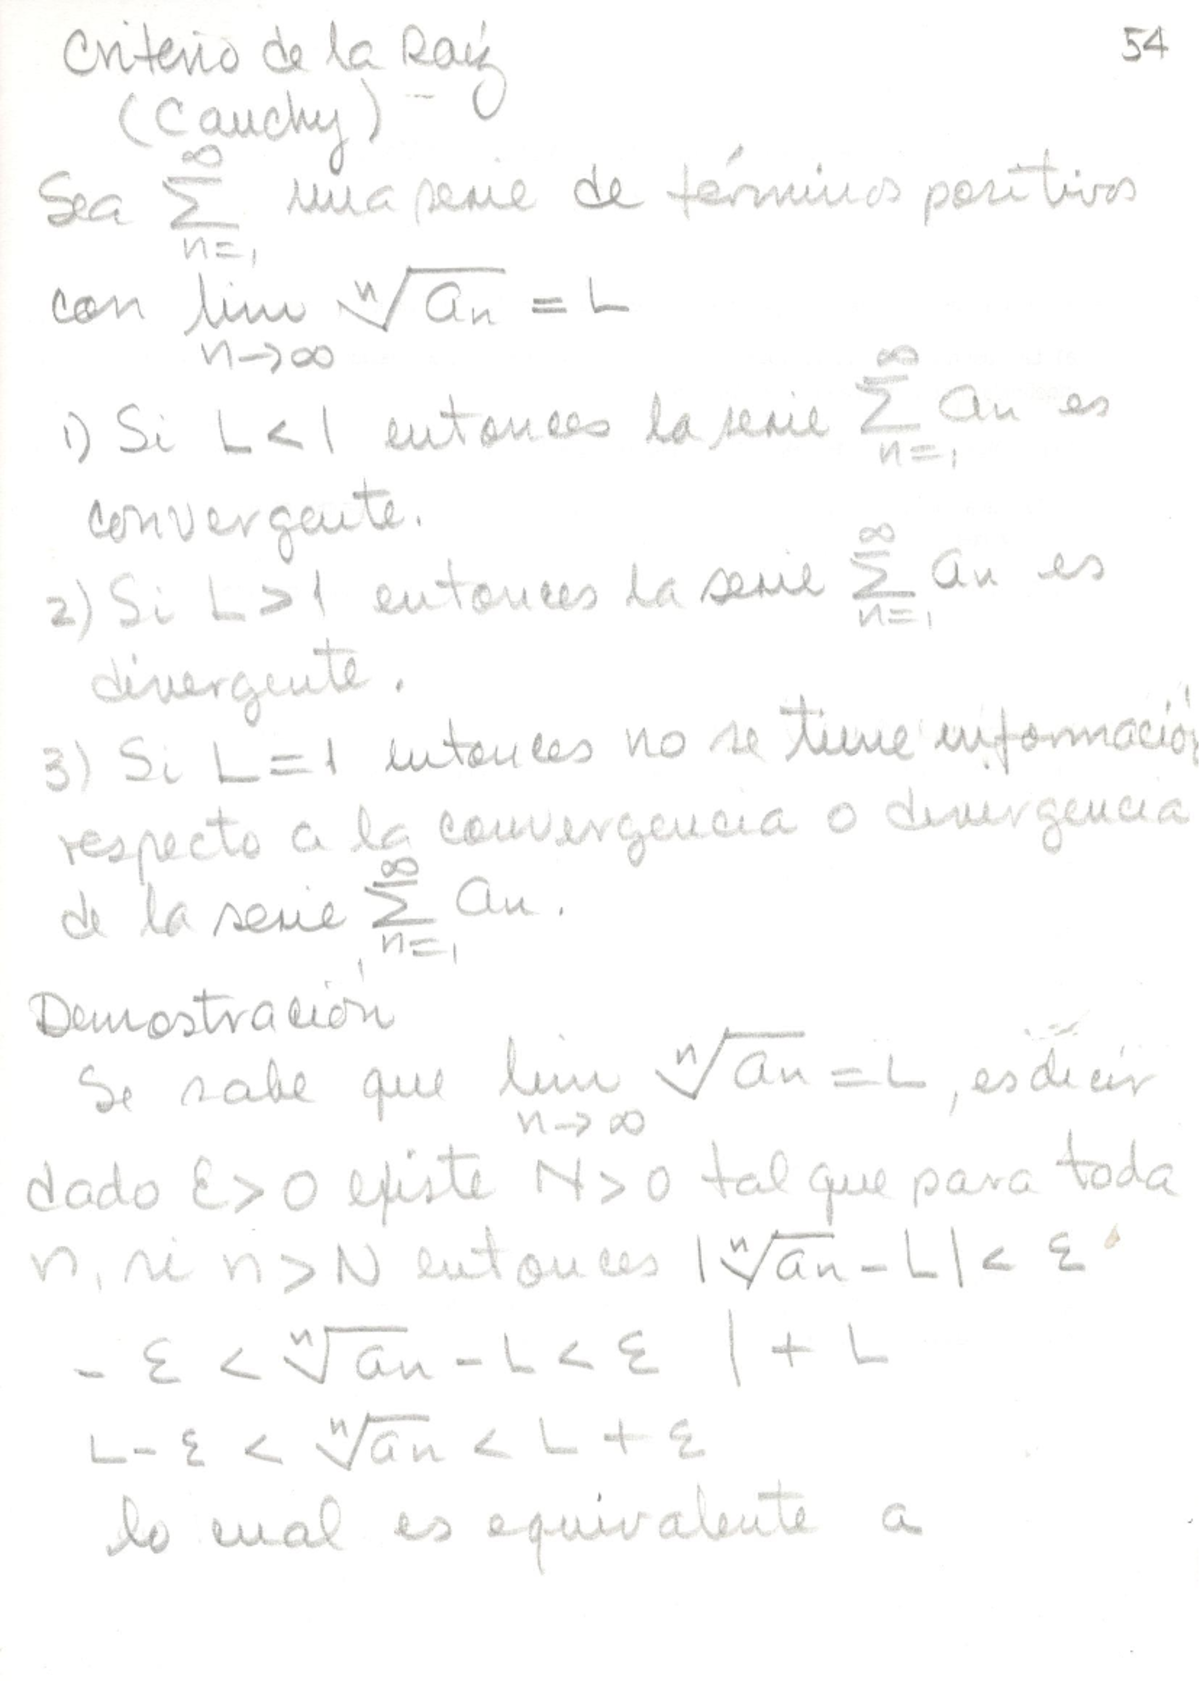 Criterio de la Raíz 54
(Cauchy)
Sea $\sum_{n=1}^{\infty}$ una serie de términos positivos
con $\lim_{n \to \infty} \sqrt[n]{a_n} = L$
1) Si L < 1 entonces la serie $\sum_{n=1}^{\infty} a_n$ es
convergente.
2) Si L > 1 entonces la serie $\sum_{n=1}^{\infty} a_n$ es
divergente.
3) Si L = 1 entonces no se tiene información
respecto a la convergencia o divergencia
de la serie $\sum_{n=1}^{\infty} a_n$.
Demostración
Se sabe que $\lim_{n \to \infty} \sqrt[n]{a_n} = L$, es decir
dado ε > 0 existe N > 0 tal que para toda
n, si n > N entonces $|\sqrt[n]{a_n} - L| < ε$
$-ε < \sqrt[n]{a_n} - L < ε$ | + L
$L - ε < \sqrt[n]{a_n} < L + ε$
lo cual es equivalente a